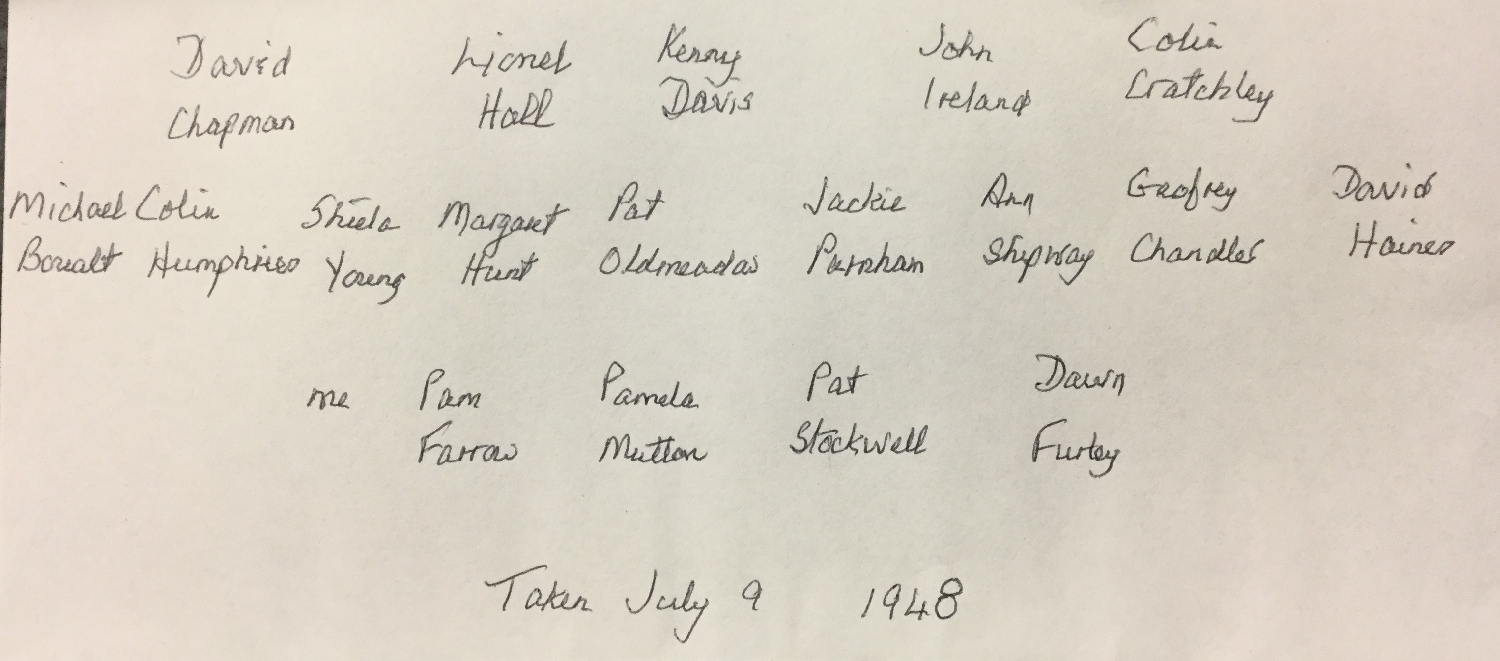 David Lionel Kenny John Colin
Chapman Hall Davis Ireland Cratchley
Michael Colin Shiela Margaret Pat Jackie Ann Geofrey David
Boualt Humphries Young Hunt Oldmeadas Parnham Shipway Chandler Haines
me Pam Pamela Pat Dawn
Farrow Mutton Stockwell Furley
Taken July 9 1948